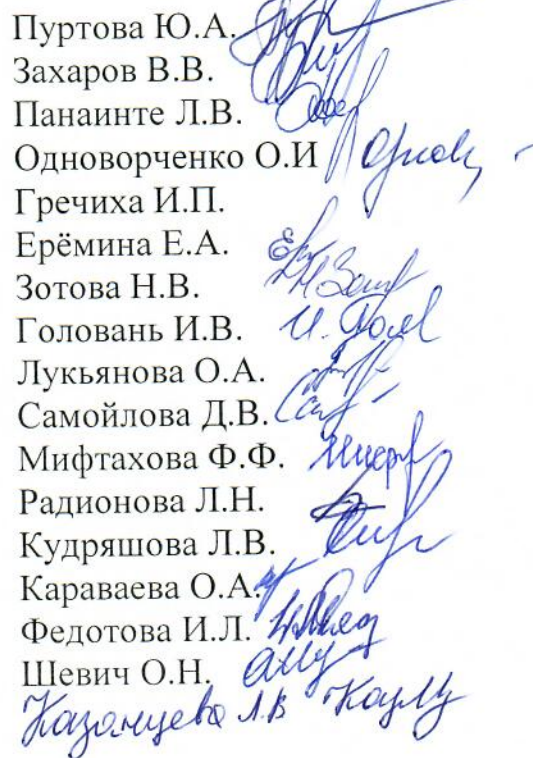 Пуртова Ю.А.
Захаров В.В.
Панаинте Л.В.
Одноворченко О.И
Гречиха И.П.
Ерёмина Е.А.
Зотова Н.В.
Головань И.В. И. Гол
Лукьянова О.А.
Самойлова Д.В.
Мифтахова Ф.Ф.
Радионова Л.Н.
Кудряшова Л.В.
Караваева О.А.
Федотова И.Л.
Шевич О.Н.
Казанцева Л.В